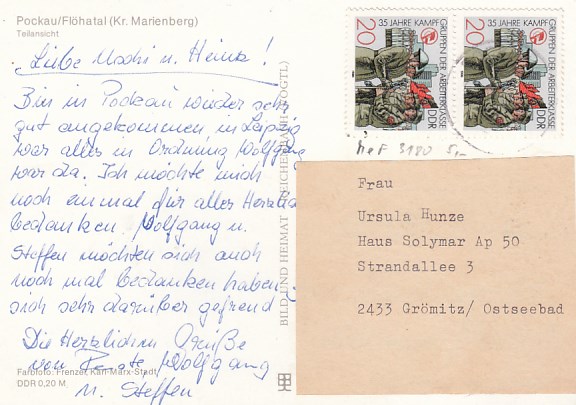 Pockau/Flöhatal (Kr. Marienberg)
Teilansicht
Liebe Mucki u. Heinz!
Bin in Pockau wieder sehr
gut angekommen, in Leipzig
war alles in Ordnung Wolfgang
war da. Ich möchte mich
noch einmal für alles Herzlich
bedanken. Wolfgang u.
Steffen möchten sich auch
noch mal bedanken haben
sich sehr darüber gefreut
Die Herzlichen Grüße
von Renate Wolfgang
u. Steffen
Farbfoto: Frenzel, Karl-Marx-Stadt
DDR 0,20 M
BILD UND HEIMAT REICHENBACH (VOGTL)
35 JAHRE KAMPFGRUPPEN DER ARBEITERKLASSE
20
DDR
35 JAHRE KAMPFGRUPPEN DER ARBEITERKLASSE
20
DDR
3180 5,-
Frau
Ursula Hunze
Haus Solymar Ap 50
Strandallee 3
2433 Grömitz/ Ostseebad